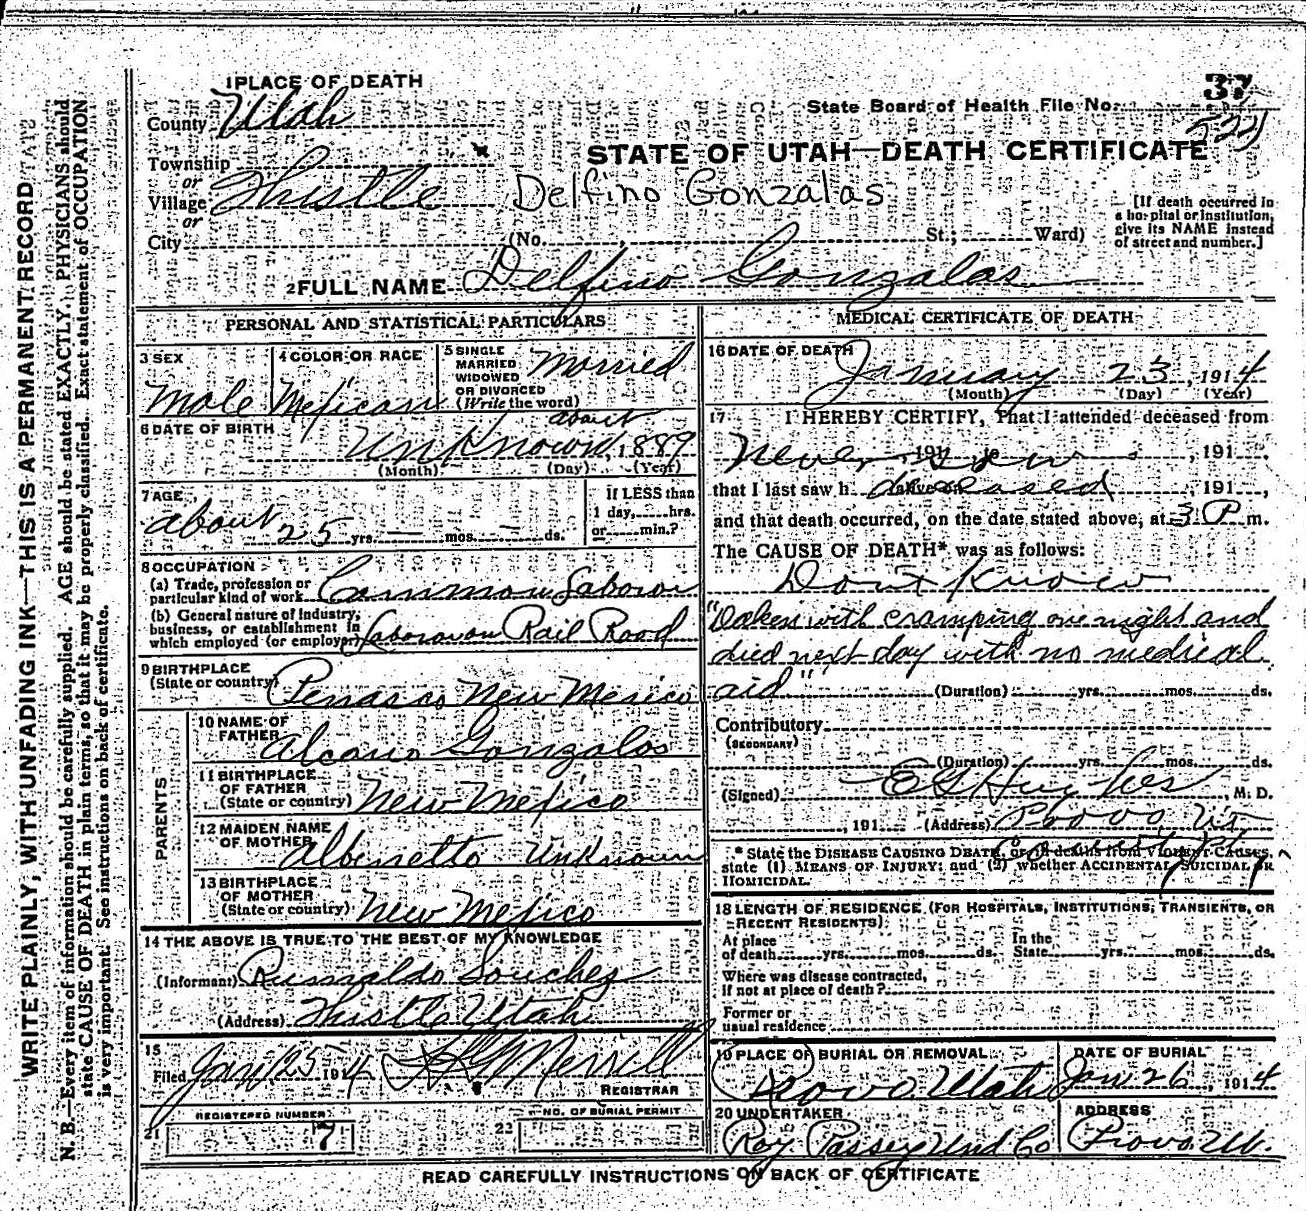 1 PLACE OF DEATH
County Utah
State Board of Health File No. 37
Township
or
Village Thistle
or
City
STATE OF UTAH—DEATH CERTIFICATE
Delfino Gonzalas
(No. St.; Ward)
[If death occurred in
a hospital or institution,
give its NAME instead
of street and number.]
2 FULL NAME Delfino Gonzalas
PERSONAL AND STATISTICAL PARTICULARS
3 SEX
Male
4 COLOR OR RACE
Mexican
5 SINGLE
MARRIED
WIDOWED
OR DIVORCED
(Write the word)
Married
6 DATE OF BIRTH
about
Unknown, 1889
(Month) (Day) (Year)
7 AGE
about 25 yrs. — mos. — ds.
If LESS than
1 day, hrs.
or min.?
8 OCCUPATION
(a) Trade, profession or
particular kind of work Common Laborer
(b) General nature of industry,
business, or establishment in
which employed (or employer) Laborer on Rail Road
9 BIRTHPLACE
(State or country) Penasco New Mexico
PARENTS
10 NAME OF
FATHER Gonzalas
11 BIRTHPLACE
OF FATHER
(State or country) New Mexico
12 MAIDEN NAME
OF MOTHER Unknown
13 BIRTHPLACE
OF MOTHER
(State or country) New Mexico
14 THE ABOVE IS TRUE TO THE BEST OF MY KNOWLEDGE
(Informant) Rumaldo Sanchez
(Address) Thistle Utah
15
Filed Jan 25 1914 Merrill
REGISTRAR
REGISTERED NUMBER
21 7
NO. OF BURIAL PERMIT
22
MEDICAL CERTIFICATE OF DEATH
16 DATE OF DEATH
January 23, 1914
(Month) (Day) (Year)
17 I HEREBY CERTIFY, That I attended deceased from
Never saw, 191
that I last saw h deceased, 191,
and that death occurred, on the date stated above, at 3 P m.
The CAUSE OF DEATH* was as follows:
Don't Know
"Taken with cramping one night and
died next day with no medical
aid" (Duration) yrs. mos. ds.
Contributory
(SECONDARY)
(Duration) yrs. mos. ds.
(Signed) E G Hughes, M. D.
, 191 (Address) Provo Ut
* State the DISEASE CAUSING DEATH, or, in deaths from VIOLENT CAUSES,
state (1) MEANS OF INJURY; and (2) whether ACCIDENTAL, SUICIDAL OR
HOMICIDAL.
18 LENGTH OF RESIDENCE (FOR HOSPITALS, INSTITUTIONS, TRANSIENTS, OR
RECENT RESIDENTS)
At place
of death yrs. mos. ds.
In the
State yrs. mos. ds.
Where was disease contracted,
if not at place of death?
Former or
usual residence
19 PLACE OF BURIAL OR REMOVAL
Provo Utah
DATE OF BURIAL
Jan 26, 1914
20 UNDERTAKER
Passey Und Co
ADDRESS
Provo Ut.
READ CAREFULLY INSTRUCTIONS ON BACK OF CERTIFICATE
WRITE PLAINLY, WITH UNFADING INK—THIS IS A PERMANENT RECORD
N. B.—Every item of information should be carefully supplied. AGE should be stated EXACTLY. PHYSICIANS should
state CAUSE OF DEATH in plain terms, so that it may be properly classified. Exact statement of OCCUPATION
is very important. See instructions on back of certificate.